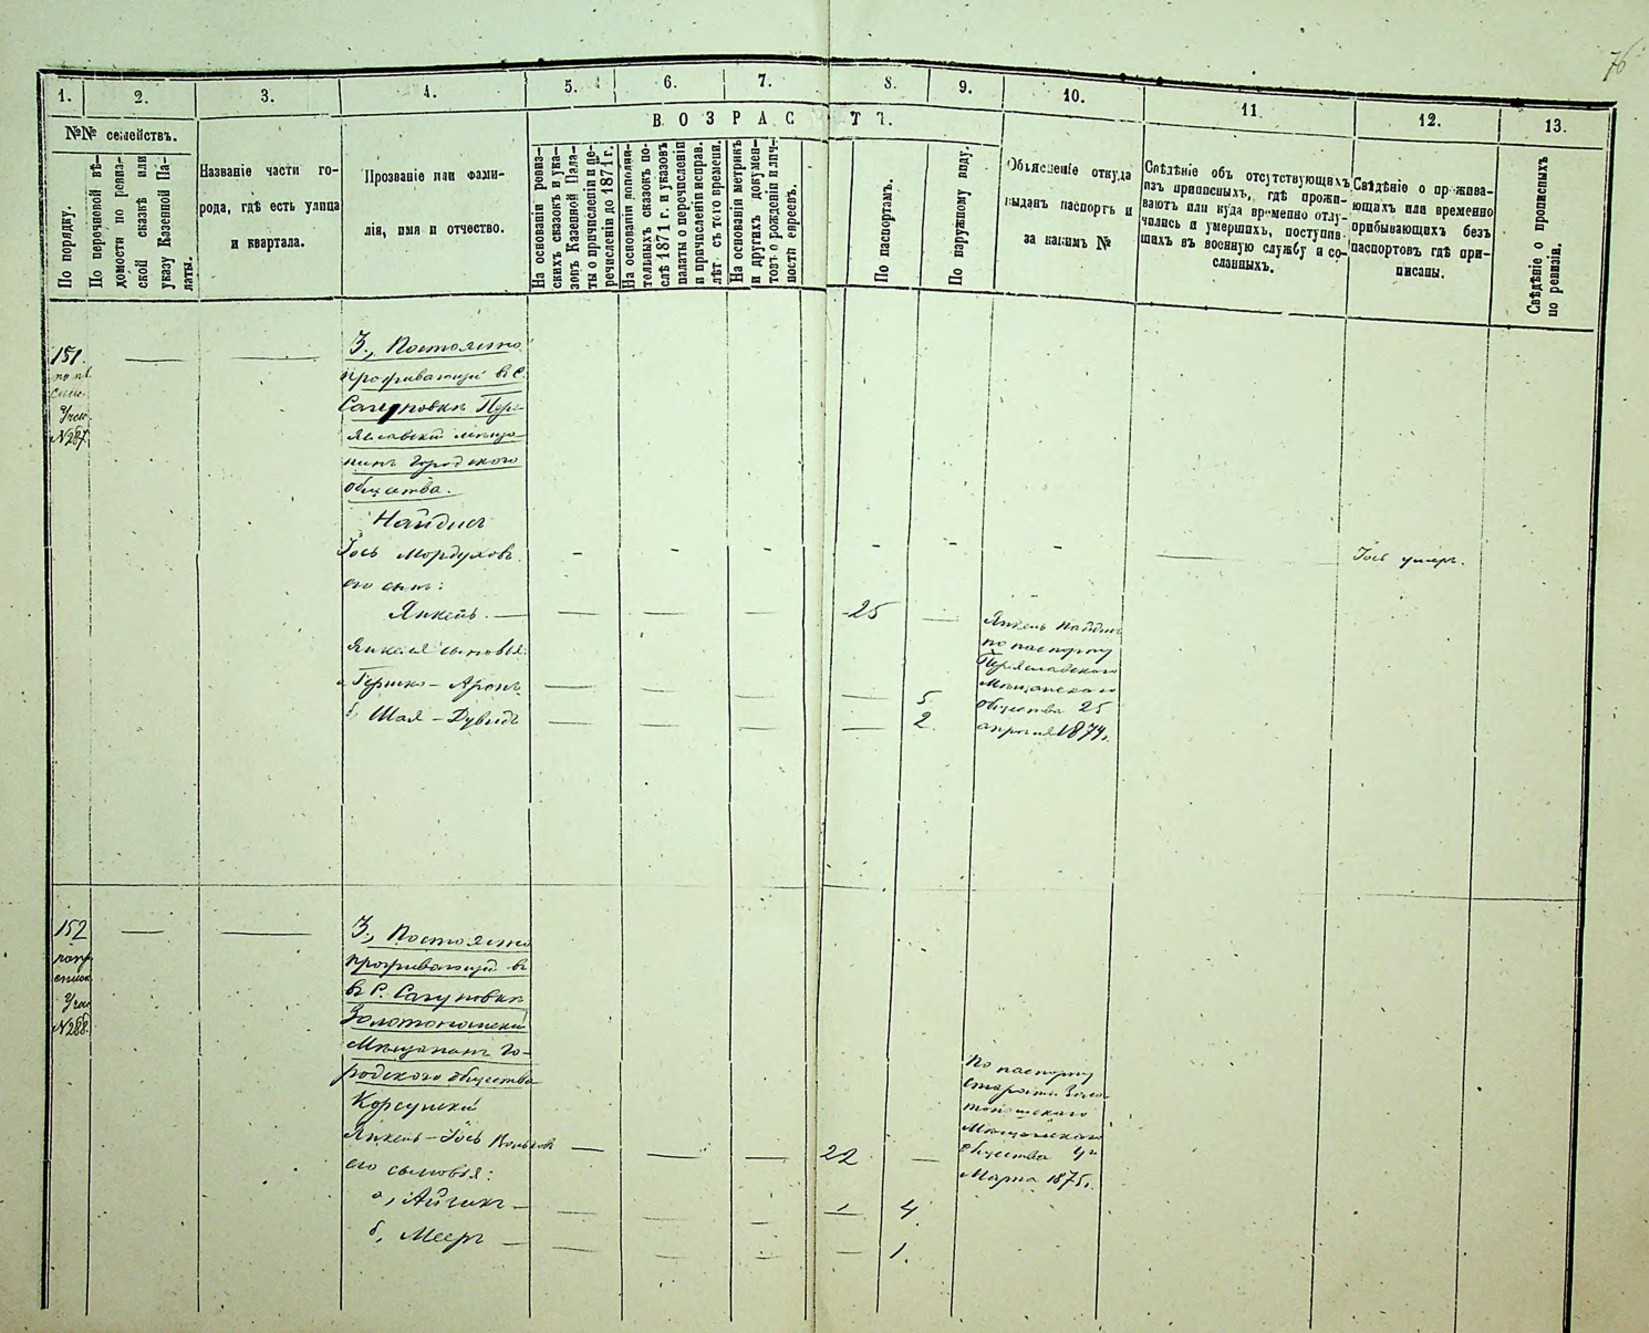 76
1. 2. 3. 4. 5. 6. 7. 8. 9. 10. 11. 12. 13.
№№ семействъ.
По порядку.
По перечневой вѣ-
домости по ревиз-
ской сказкѣ или
указу Казенной Па-
латы.
Названіе части го-
рода, гдѣ есть улица
и квартала.
Прозваніе или фами-
лія, имя и отчество.
ВОЗРАСТЪ.
На основаніи ревиз-
скихъ сказокъ и ука-
зовъ Казенной Пала-
ты о причисленіи и пе-
речисленіи до 1871 г.
На основаніи дополни-
тельныхъ сказокъ по-
слѣ 1871 г. и указовъ
палаты о перечисленіи
и причисленіи исправ.
лѣт. съ того времени.
На основаніи метрикъ
и другихъ докумен-
товъ о рожденіи и лич-
ности евреевъ.
По паспортамъ.
По наружному виду.
Объясненіе откуда
выданъ паспортъ и
за какимъ №
Свѣдѣніе объ отсутствующихъ
изъ приписныхъ, гдѣ прожи-
ваютъ или куда временно отлу-
чались и умершихъ, поступив-
шихъ въ военную службу и со-
сланныхъ.
Свѣдѣніе о прожива-
ющихъ или временно
прибывающихъ безъ
паспортовъ гдѣ при-
писаны.
Свѣдѣніе о прописныхъ
по ревизіи.
151.
№ 287
3., Постоянно
проживающій въ с.
Сагуновкѣ Пере-
яславскій мѣща-
нинъ Городского
общества.
Найдис
Іось Мордуховъ - - - - - - Іось умеръ.
его сынъ:
Янкель. 25
Янкеля сыновья:
а Гершко-Аронъ 5.
б Шая-Дувидъ 2.
Янкель Найдис
по паспорту
Переяславского
Мѣщанского
общества 25
апрѣля 1874 г.
152
список
№ 288.
3., Постоянно
проживающій въ
въ С. Сагуновкѣ
Золотоношскій
Мѣщанинъ Го-
родского общества
Корсунскій
Янкель-Іось 22
его сыновья:
а, Айзикъ 1 4.
б, Мееръ 1.
По паспорту
старосты Золо-
тоношскаго
Мѣщанского
общества
Марта 1875 г.